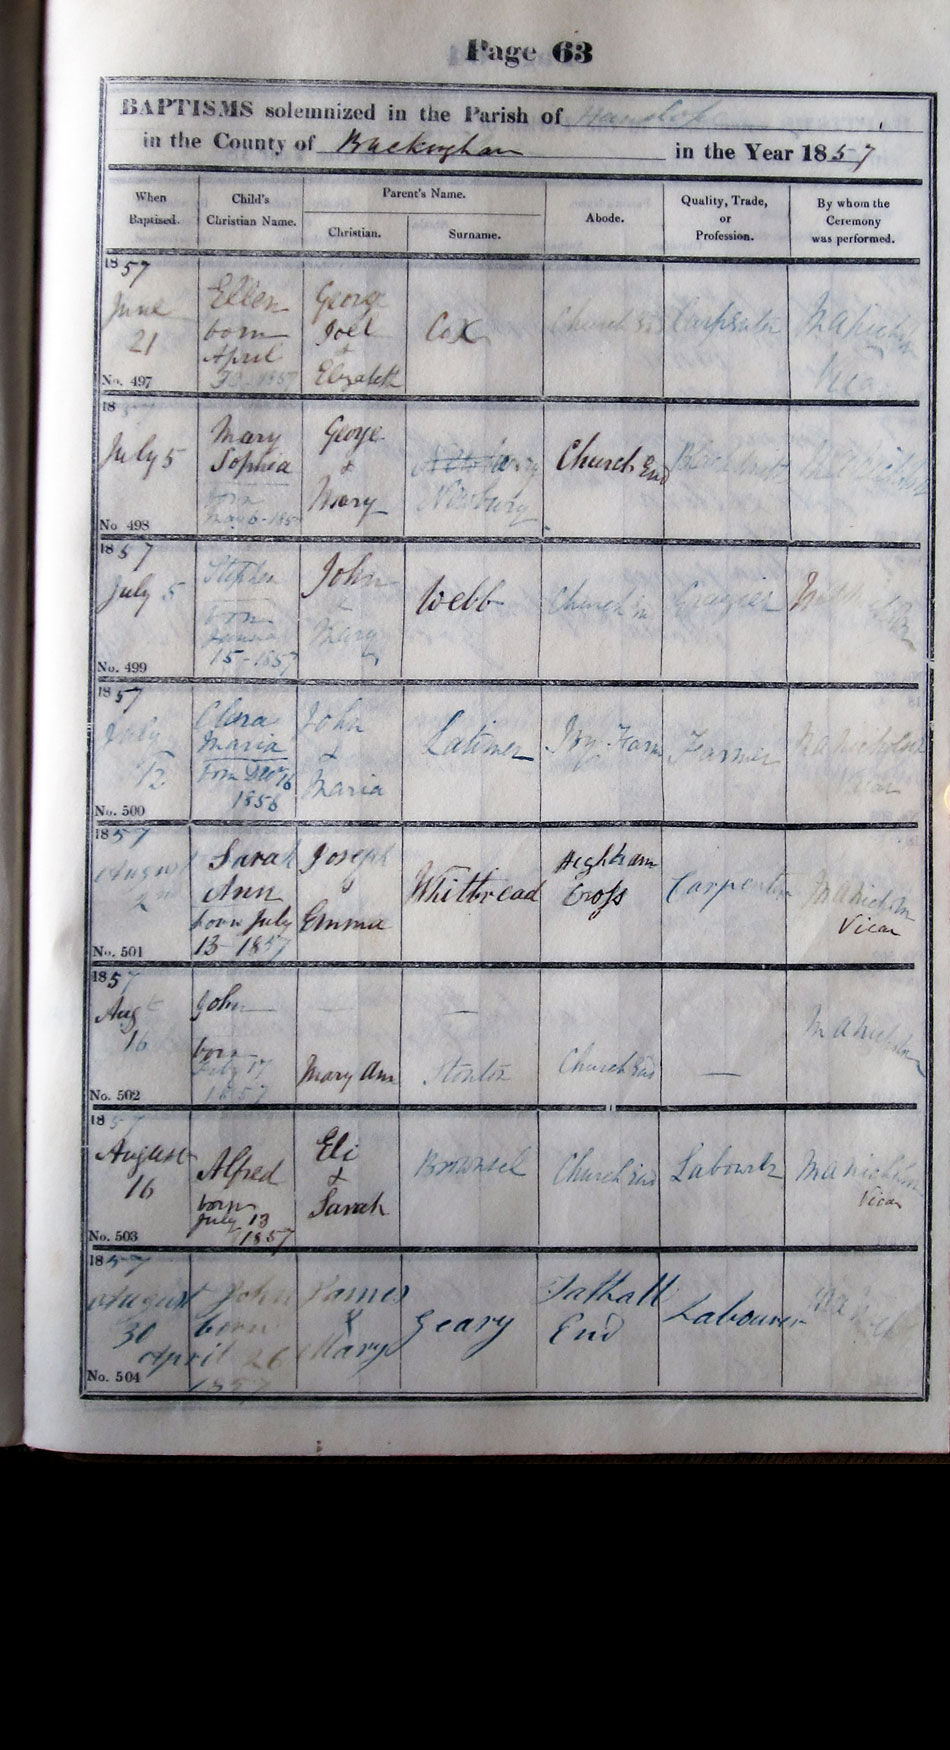 Page 63
BAPTISMS solemnized in the Parish of Hanslope
in the County of Buckingham in the Year 1857
When Baptised.
Child's Christian Name.
Parent's Name.
Christian.
Surname.
Abode.
Quality, Trade, or Profession.
By whom the Ceremony was performed.
1857
June
21
No. 497
Ellen
born
April
1857
George
Joel
&
Elizabeth
Cox
Church End
Carpenter
18
July 5
No. 498
Mary
Sophia
born
George
&
Mary
Newbury
Church End
1857
July 5
No. 499
Stephen
born
15 - 1857
John
&
Mary
Webb
Church End
Grazier
1857
July
12
No. 500
Clara
Maria
born Decr 16
1856
John
&
Maria
Latimer
Ivy Farm
Farmer
Vicar
1857
August
2nd
No. 501
Sarah
Ann
born July
13 1857
Joseph
&
Emma
Whitbread
Higham
Cross
Carpenter
Vicar
1857
Augt
16
No. 502
John
born
July 17
1857
—
Mary Ann
—
Church End
—
1857
August
16
No. 503
Alfred
born
July 13
1857
Eli
&
Sarah
Church End
Labourer
Vicar
1857
August
30
No. 504
John
born
April 26
1857
James
&
Mary
Geary
Tathall
End
Labourer